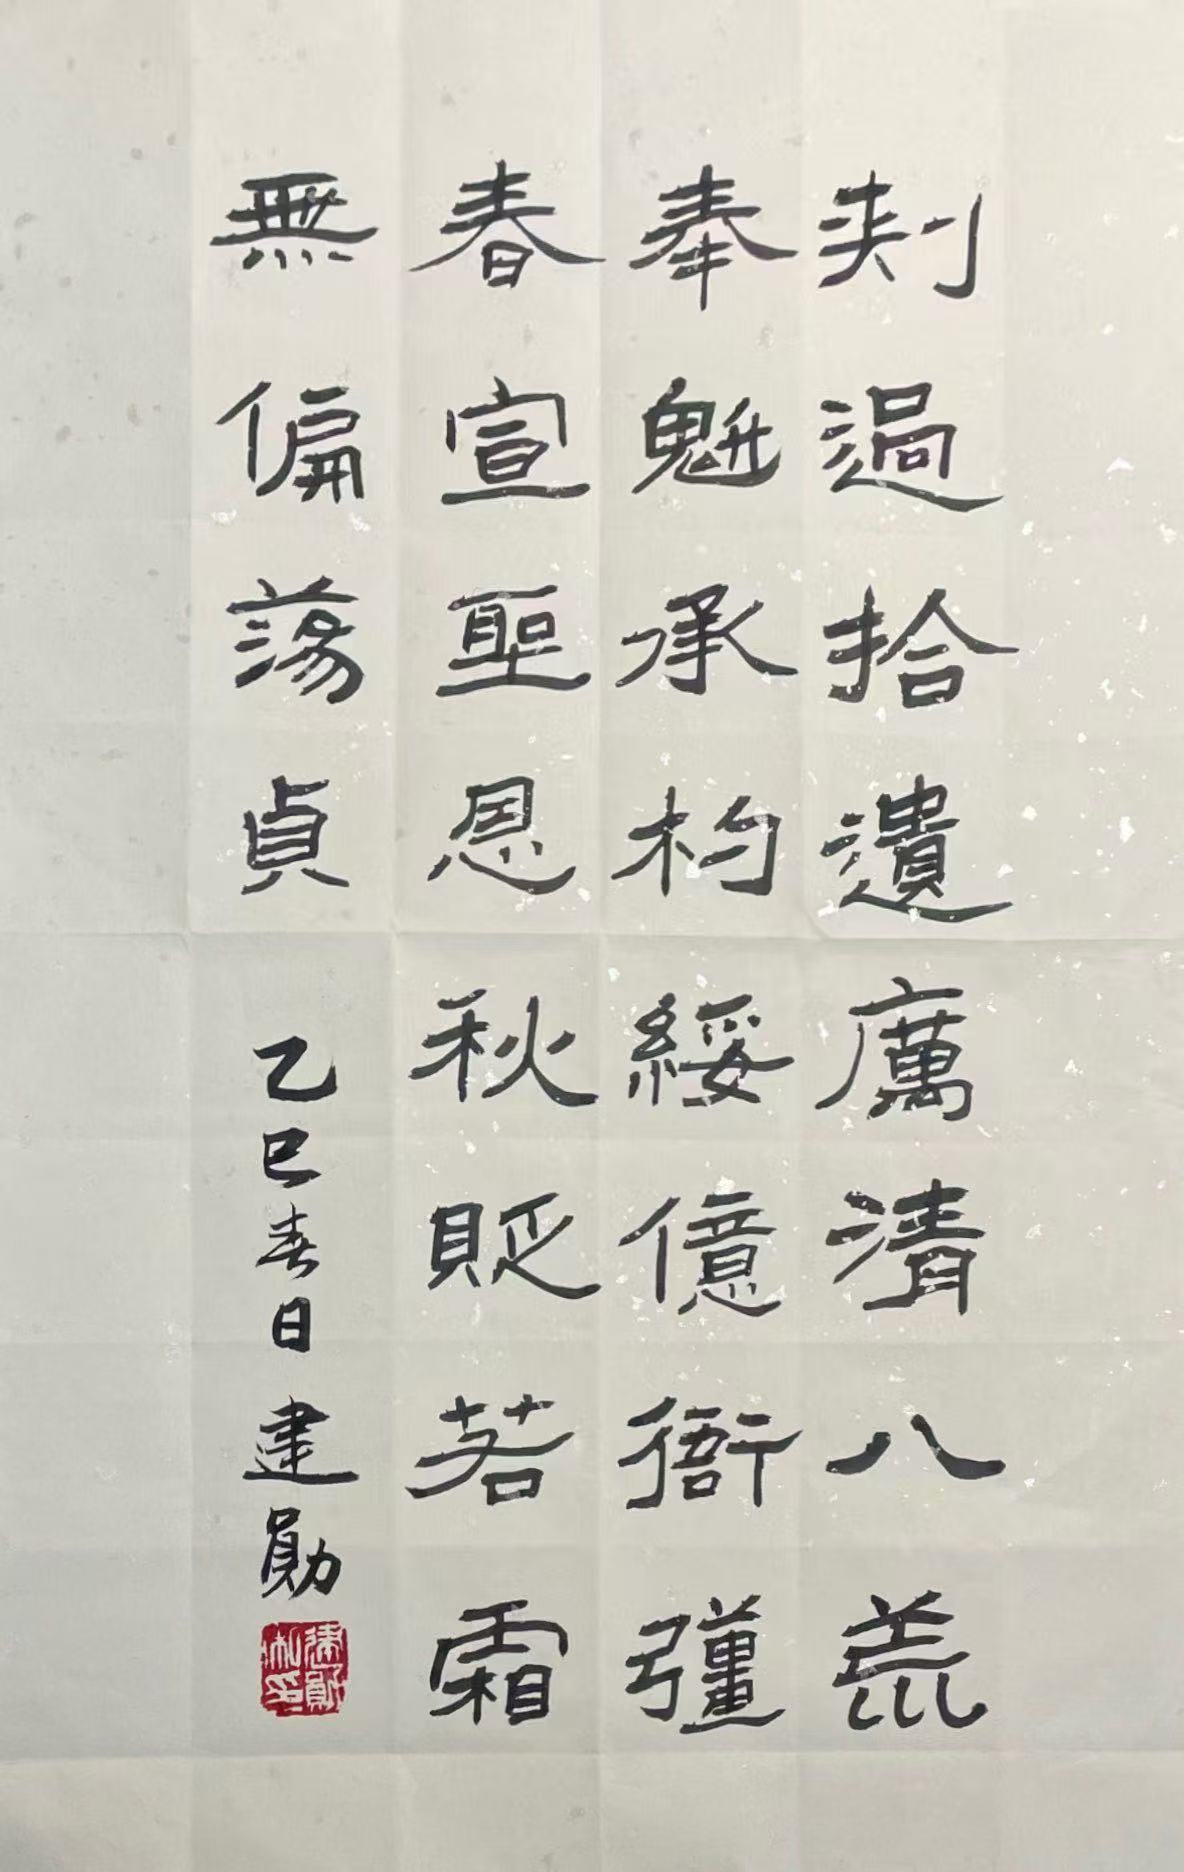 刺過拾遺厲清八荒
奉魁承杓綏億衙彊
春宣聖恩秋貶若霜
無偏蕩貞
乙巳春日建勛
建勛私印